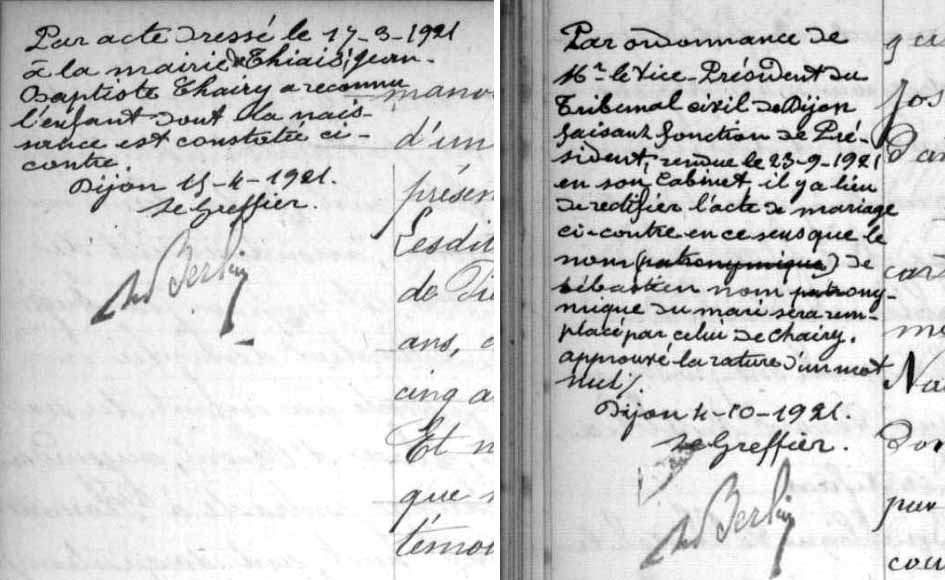 Par acte dressé le 17-3-1921
à la mairie de Thiais, Jean-
Baptiste Chairy a reconnu
l'enfant dont la nais-
sance est constatée ci-
contre
Dijon 15-4-1921.
Le Greffier.
mano
d'un
présen
Lesdit
de Di
ans, c
cinq a
Et n
que
témoi
Par ordonnance de
Mr le Vice-Président du
Tribunal civil de Dijon
faisant fonction de Pré-
sident, rendue le 23-9-1921
en son Cabinet, il y a lieu
de rectifier l'acte de mariage
ci-contre en ce sens que le
nom (patronymique) de
Sébastien nom patrony-
mique du mari sera rem-
placé par celui de Chairy.
approuvé la rature d'un mot
nul ./.
Dijon 4-10-1921.
Le Greffier.
jos
Dan
car
me
Na
Don
par
cou